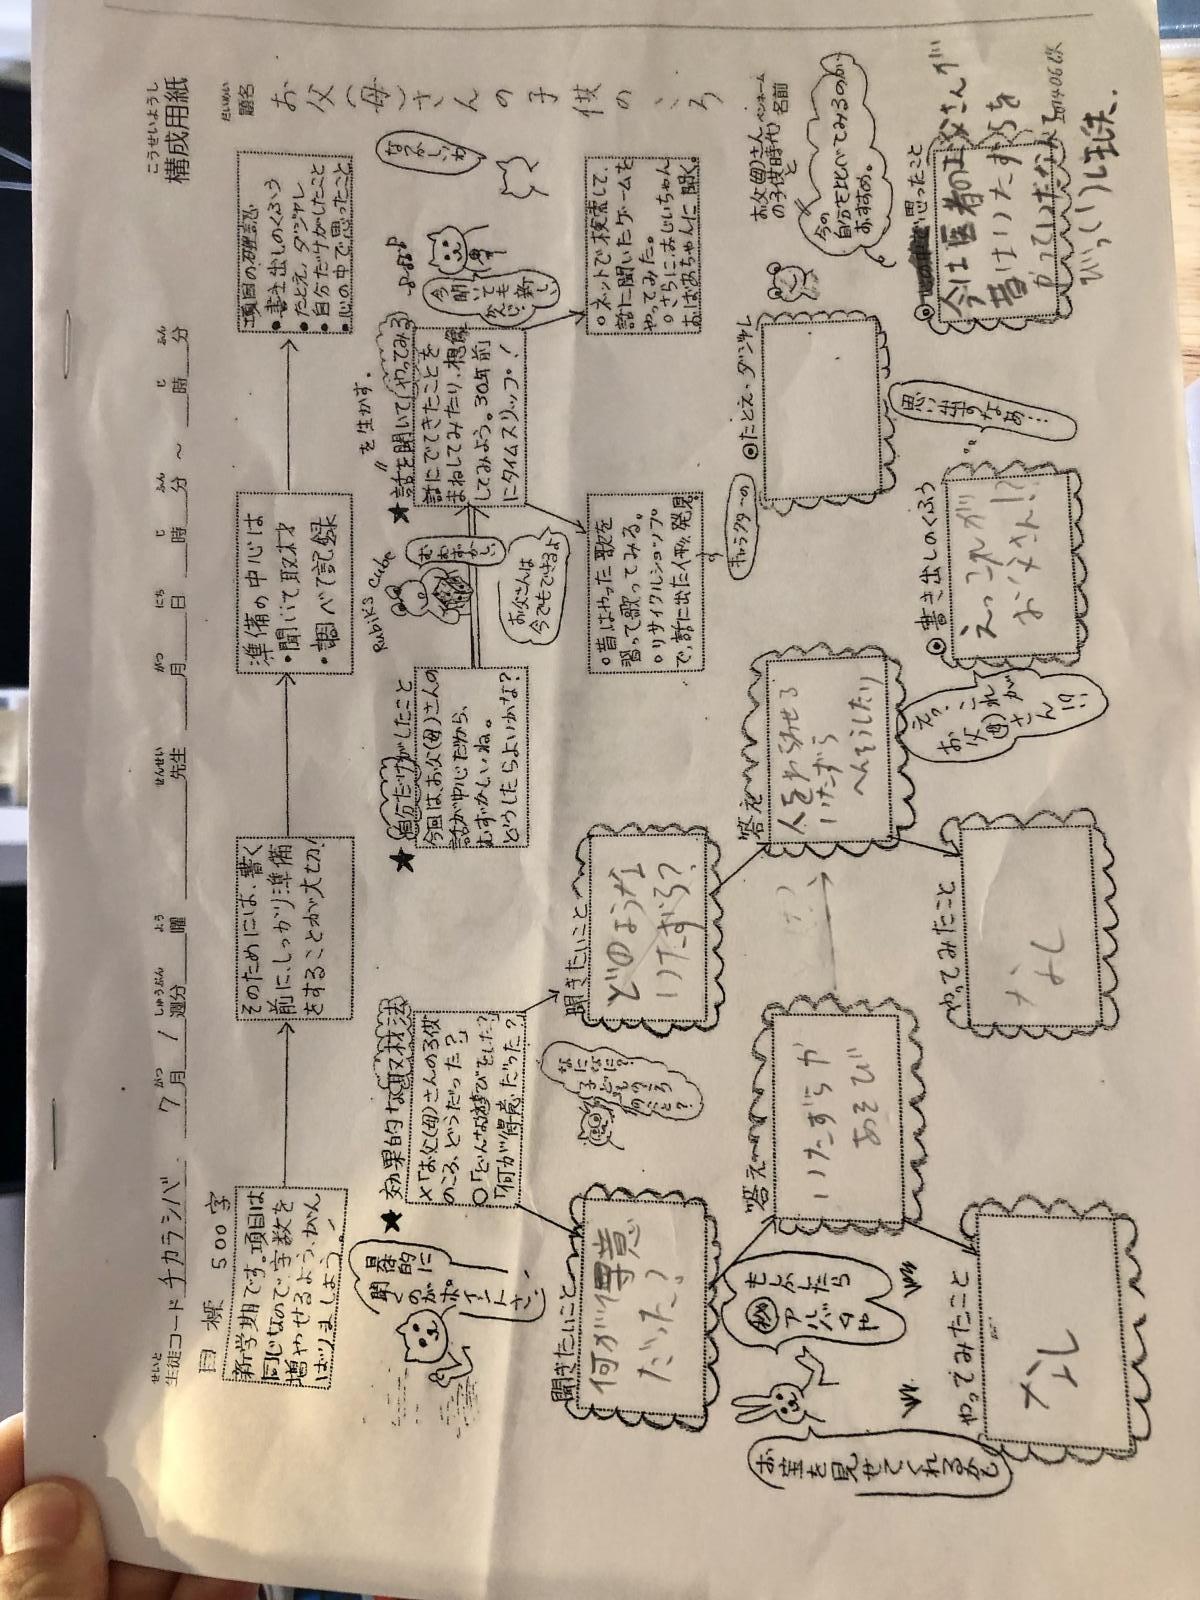 こうせいようし
構成用紙
せいと
生徒コード チカラシバ
がつ しゅうぶん よう
7月 1週分 曜
せんせい
先生
がつ にち じ ふん じ ふん
月 日 時 分 ～ 時 分
だいめい
題名
お父(母)さんの子供のころ
目標 500字
新学期です。項目は
同じなので、字数を
増やせるよう、がん
ばりましょう。
そのためには、書く
前に、しっかり準備
をすることが大切!
準備の中心は
・聞いて取材
・調べて記録
項目の確認
・書き出しのくふう
・たとえ、ダジャレ
・自分だけがしたこと
・心の中で思ったこと
具体的に
聞くのが
ポイントさ!
★効果的な取材法
×「お父(母)さんの子供
のころ、どうだった?」
○「どんな遊びをした?」
「何が得意だった?」
★自分だけがしたこと
今回は、お父(母)さんの
話が中心だから、
むずかしいね。
どうしたらよいかな?
Rubik's Cube
むずかしい
お父さんは
今でもできるよ
を生かす。
★話を聞いてやってみる
話にでてきたことを
まねしてみたり、想像
してみよう。30年前
にタイムスリップ!
なつかしいね
今聞いても
新しい
かんじ
○昔はやった歌を
習って歌ってみる。
○リサイクルショップ
で、話に出た人形発見。
キャラクターの
○ネットで検索して、
話に聞いたゲームを
やってみた。
○さらに、おじいちゃん
おばあちゃんに聞く。
聞きたいこと
何が得意
だった?
なになに?
子どもの
ころ
何だと?
聞きたいこと
どのような
いたずら?
お父(母)さん
の子供時代と
ペンネーム
名前
今の
自分と比べてみるのが
おすすめ。
お宝を見せてくれるかも
もしかしたら
㊙アルバムや
答え
いたずらか
あそび
答え
人をわらわせる
いたずら
へんそうしたり
◎たとえ・ダジャレ
やってみたこと
なし
やってみたこと
なし
えっ、これが
お父(母)さん!?
◎書き出しのくふう
えっこれが
お父さん!?
思い出すなぁ…
思ったこと
今は医者のお父さんが
昔はいたずらを
やっていたなんて
びっくりしました。